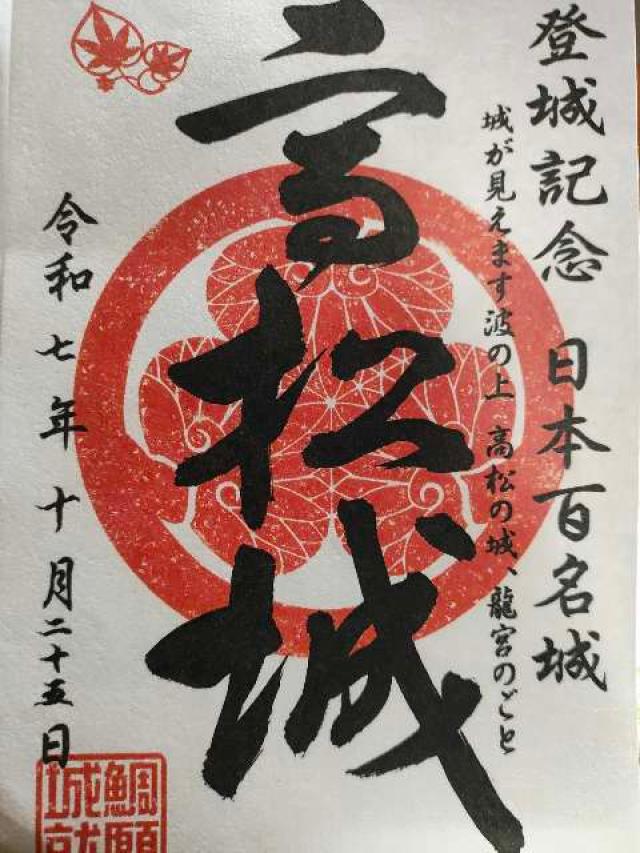 登城記念 日本百名城
城が見えます波の上 高松の城、龍宮のごと
高松城
令和七年十月二十五日
鯛願
城就